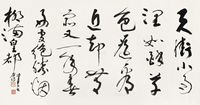 天街小雨
润如酥草
色遥看
近却无
最是一年春
好处绝胜烟
柳满皇都